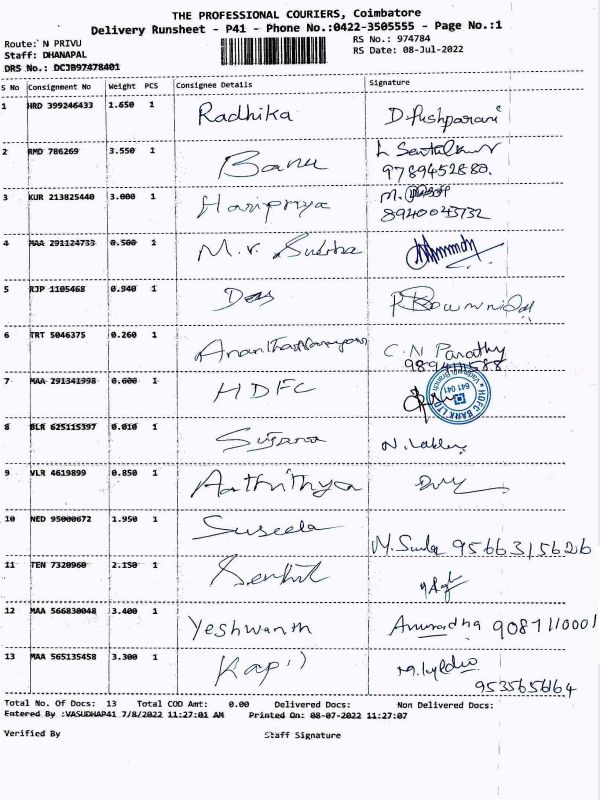 THE PROFESSIONAL COURIERS, Coimbatore
Delivery Runsheet - P41 - Phone No.:0422-3505555 - Page No.:1
Route: N PRIVU RS No.: 974784
Staff: DHANAPAL RS Date: 08-Jul-2022
DRS No.: DCJB97478401
S No Consignment No Weight PCS Consignee Details Signature
1 HRD 399246433 1.650 1 Radhika D.Pushparani
2 RMD 786269 3.550 1 Banu
9789452880.
3 KUR 213825440 3.000 1 Haripriya
8940043732
4 MAA 291124733 0.500 1 M.V. Sudha
5 RJP 1105468 0.940 1 Das
6 TRT 5046375 0.260 1 C.N Parathy
7 MAA 291341998 0.600 1 HDFC HDFC BANK LTD 641 041
8 BLR 625115397 0.010 1 Sujana
9 VLR 4619899 0.850 1 Aathithya
10 NED 95000672 1.950 1 Suseela
9566315626
11 TEN 7320960 2.150 1 Senthil
12 MAA 566830048 3.400 1 Yeshwanth Anuradha 9087110001
13 MAA 565135458 3.300 1 Kapil
9535656164
Total No. Of Docs: 13 Total COD Amt: 0.00 Delivered Docs: Non Delivered Docs:
Entered By :VASUDHAP41 7/8/2022 11:27:01 AM Printed On: 08-07-2022 11:27:07
Verified By Staff Signature